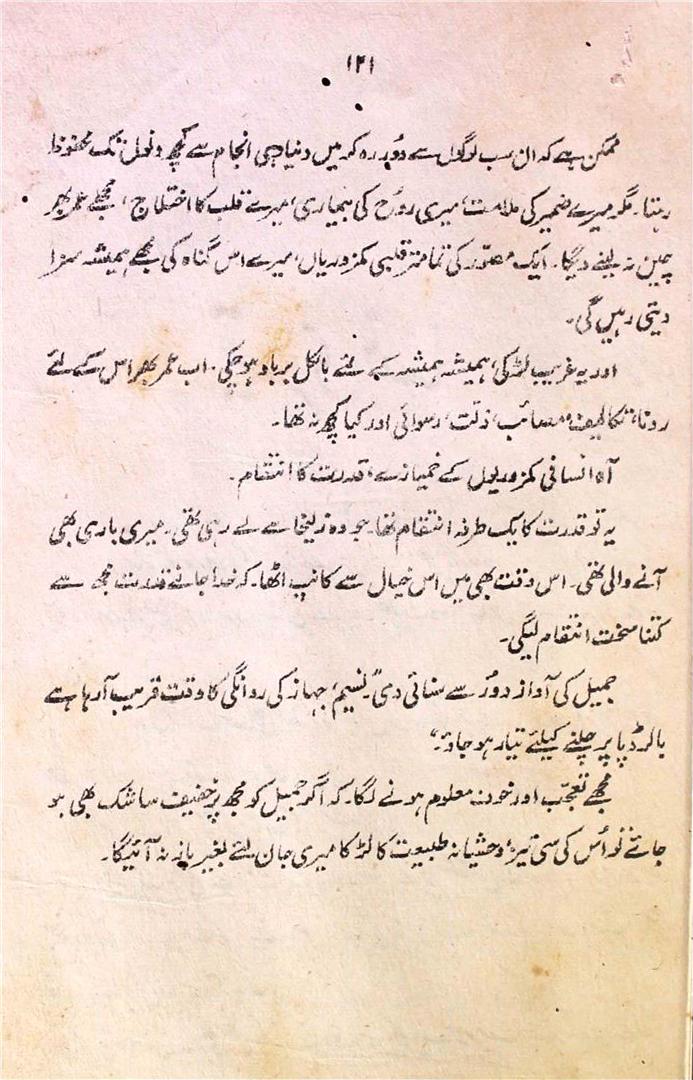 ۱۲۱
ممکن ہے کہ ان سب لوگوں سے دُور رہ کر میں دنیاجی انجام سے کچھ دنوں تک محفوظ
رہتا۔ مگر میرے ضمیر کی ملامت، میری روح کی بیماری، میرے قلب کا اختلاج، مجھے عمر بھر
چین نہ لینے دیگا۔ ایک مصوّر کی تمامتر قلبی کمزوریاں، میرے اس گناہ کی مجھے ہمیشہ سزا
دیتی رہیں گی۔
اور یہ غریب لڑکی، ہمیشہ ہمیشہ کے لئے بالکل برباد ہو چکی۔ اب عمر بھر اس کے لئے
رونا، تکالیف، مصائب، ذلت، رسوائی اور کیا کچھ نہ تھا۔
آہ انسانی کمزوریوں کے خمیازے، قدرت کا انتقام۔
یہ تو قدرت کا یک طرفہ انتقام تھا۔ جو وہ زلیخا سے لے رہی تھی۔ میری باری بھی
آنے والی تھی۔ اس وقت بھی میں اس خیال سے کانپ اٹھا۔ کہ خدا جانے قدرت مجھ سے
کتنا سخت انتقام لیگی۔
جمیل کی آواز دور سے سنائی دی "نسیم، جہاز کی روانگی کا وقت قریب آ رہا ہے
بالرڈ پا پر چلنے کیلئے تیار ہو جاؤ۔"
مجھے تعجّب اور خوف معلوم ہونے لگا۔ کہ اگر جمیل کو مجھ پر خفیف سا شک بھی ہو
جائے تو اُس کی سی تیز، وحشیانہ طبیعت کا لڑکا میری جان لئے بغیر باز نہ آئیگا۔